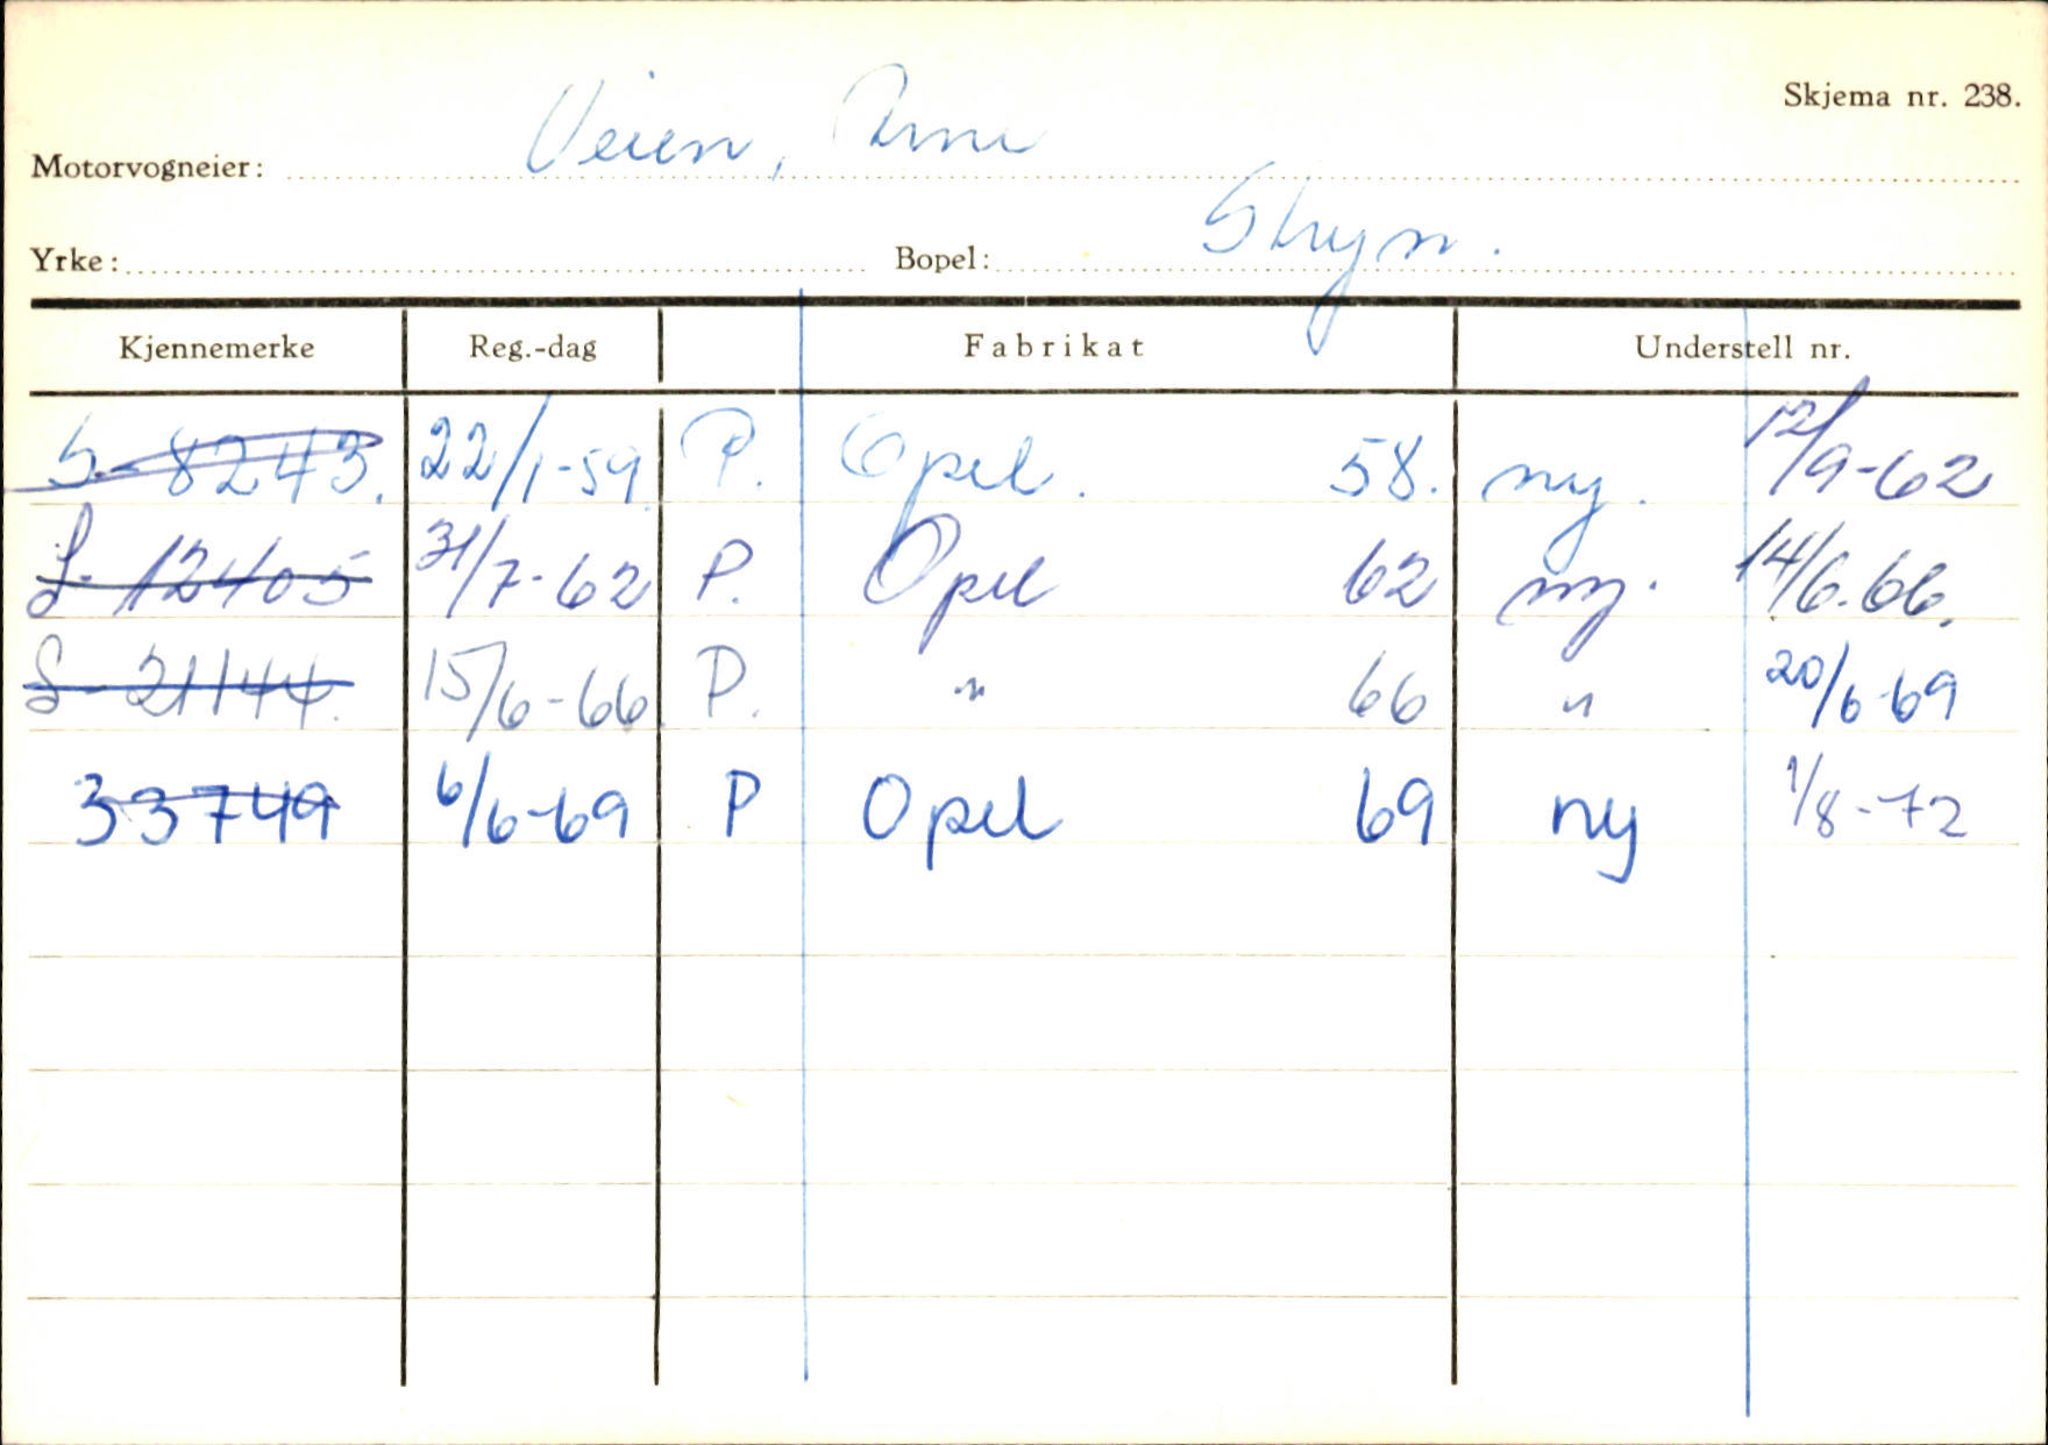 Skjema nr. 238.
Motorvogneier: Veien, Arne
Yrke: Bopel: Stryn.
Kjennemerke Reg.-dag Fabrikat Understell nr.
S-8243. 22/1-59. P. Opel. 58. ny. 12/9-62
S-12405 31/7-62 P. Opel 62 ny. 14/6.66.
S-21144. 15/6-66. P. " 66 " 20/6-69
33749 6/6-69 P Opel 69 ny 1/8-72